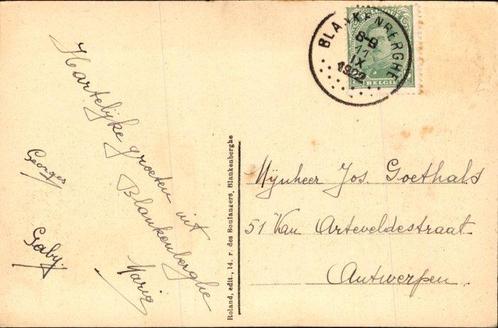 Hartelijke groeten uit
Blankenberghe
Maria
Georges
Gaby
Roland, edit., 14. r. des Boulangers, Blankenberghe
BLANKENBERGHE
8-9
11
IX
1922
BELGIE
Mijnheer Jos. Goethals
51 Van Arteveldestraat
Antwerpen